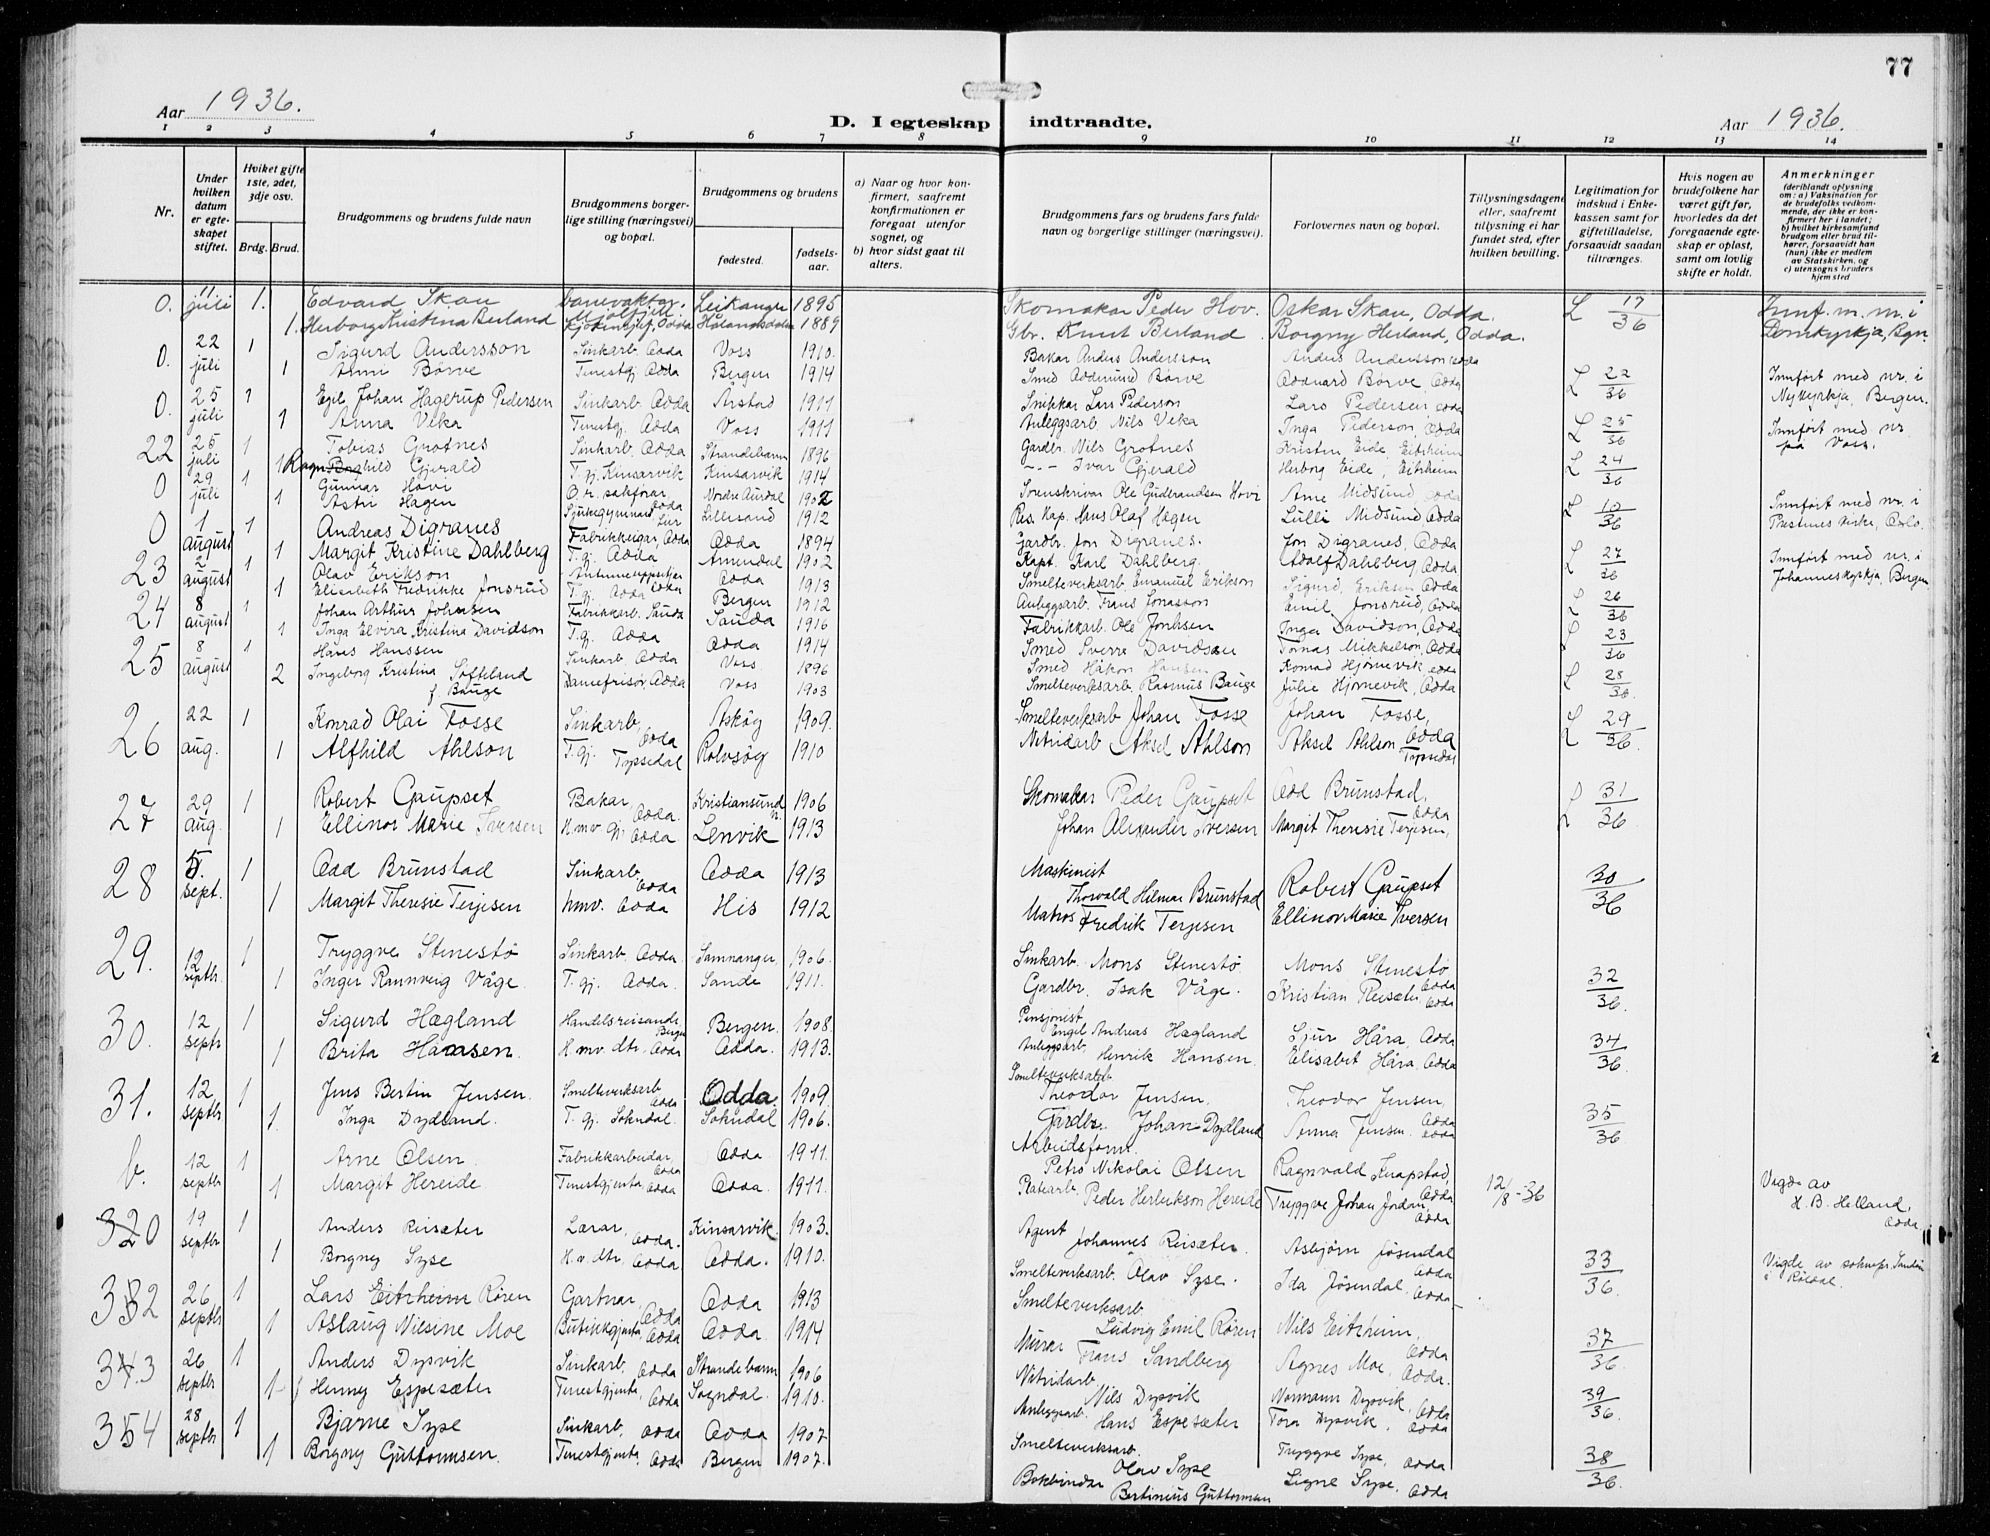 77
Aar 1936.
D. I egteskap indtraadte.
Aar 1936.
1 2 3 4 5 6 7 8 9 10 11 12 13 14
Nr.
Under hvilken datum er egteskapet stiftet.
Hviket gifte 1ste, 2det, 3dje osv.
Brdg. Brud.
Brudgommens og brudens fulde navn
Brudgommens borgerlige stilling (næringsvei) og bopæl.
Brudgommens og brudens
fødested.
fødselsaar.
a) Naar og hvor konfirmert, saafremt konfirmationen er foregaat utenfor sognet, og
b) hvor sidst gaat til alters.
Brudgommens fars og brudens fars fulde navn og borgerlige stillinger (næringsvei).
Forlovernes navn og bopæl.
Tillysningsdagene eller, saafremt tillysning ei har fundet sted, efter hvilken bevilling.
Legitimation for indskud i Enkekassen samt for giftetilladelse, forsaavidt saadan tiltrænges.
Hvis nogen av brudefolkene har været gift før, hvorledes da det foregaaende egteskap er opløst, samt om lovlig skifte er holdt.
Anmerkninger (deriblandt oplysning om: a) Vaksination for de brudefolks vedkommende, der ikke er konfirmert her i landet; b) hvilket kirkesamfund brudgom eller brud tilhører, forsaavidt han (hun) ikke er medlem av Statskirken, og c) utensogns bruders hjemsted
0. 11 juli 1. Edvard Skau banevaktar. Mjölfjell Leikanger 1895 Skomakar Peder Hov. Oskar Skau, Odda. L 17/36 Innf. m. nr. i
1. Herborg Kristina Berland Odda 1889 Gbr. Knut Berland Borgny Herland, Odda. Domkyrkja, Bgn.
0. 22 juli 1 Sigurd Andersson Sinkarb. Odda Voss 1910. Bakar Anders Andersson Anders Andersson Odda L 22/36 Innført med nr. i
1 Anni Børve Tenestgj. Odda Bergen 1914 Smed Oddmund Børve Oddvard Børve Odda Nykyrkja, Bergen.
0. 25 juli 1 Egil Johan Hagerup Pedersen Sinkarb. Odda Årstad 1911 Snikkar Lars Pederson Lars Pedersen Odda L 25/36 Innført med nr
1 Anna Vika Tenestgj. Odda Voss 1911 Anleggsarb Nils Vika Inga Pederson, Odda på Voss.
22 25 juli 1 Tobias Grotnes Sinkarb. Odda Strandebarm 1896 Gardbr. Nils Grotnes Kristen Eide, Eitrheim L 24/36
1 Ragnhild Gjerald T. gj. Kinsarvik Kinsarvik 1914 -"- Ivar Gjerald Herborg Eide, Eitrheim
0 29 juli 1 Gunnar Hovi O.r. sakførar Odda Nordre Aurdal 1902 Sorenskrivar Ole Gudbrandsen Hovi Arne Midsund, Odda L 10/36 Innført med nr. i
1 Astri Hagen Sjukegymnast Lillesand 1912 Res. Kap. Hans Olaf Hagen Lulli Midsund, Odda kirke, Oslo.
0 1 august 1 Andreas Digranes Fabrikkeigar, Odda Odda 1894 Gardbr. Jon Digranes. Jon Digranes, Odda L 27/36 Innført med nr. i
1 Margit Kristine Dahlberg T. gj. Odda Arendal 1902 Kapt. Karl Dahlberg. Adolf Dahlberg Odda Johanneskyrkja, Bergen
23 2 august 1 Olav Erikson Odda Odda 1913 Smelteverksarb. Emanuel Erikson Sigurd Eriksen Odda L 26/36
1 Elisabeth Fredrikke Jonsrud T. gj. Odda Bergen 1912 Anleggsarb. Frans Jonasson Emil Jonsrud, Odda
24 8 august 1 Johan Arthur Johnsen Fabrikkarb. Sauda Sauda 1916 Fabrikkarb. Ole Jonhsen Inga Davidson, Odda L 23/36
1 Inga Elvira Kristina Davidson T. gj. Odda Odda 1914 Smed Sverre Davidsen Tomas Mikkelson, Odda
25 8 august 1 Hans Hanssen Sinkarb. Odda Voss 1896 Smed Håkon Hansen Konrad Hjørnevik Odda L 28/36
2 Ingeborg Kristina Softeland f. Bauge Damefrisør, Odda Voss 1903 Smelteverksarb. Rasmus Bauge Julie Hjørnevik, Odda
26 22 aug. 1 Konrad Olai Fosse Sinkarb. Odda Askøy 1909. Smelteverksarb Johan Fosse Johan Fosse, Odda L 29/36.
1 Alfhild Ahlson T. gj. Tyssedal Rolvsøy 1910 Nitridarb Aksel Ahlson Aksel Ahlson, Tyssedal
27 29 aug. 1 Robert Gaupset Bakar, Odda. Kristiansund n. 1906 Skomakar Peder Gaupset Odd Brunstad, Odda L 31/36.
1 Ellinor Marie Iversen H.mv. gj. Odda Lenvik 1913 Johan Alexander Iversen Margit Theresie Terjesen,
28 5. sept. 1 Odd Brunstad Sinkarb. Odda Odda 1913 Maskinist Thorvald Hilmar Brunstad Robert Gaupset 30/36
1 Margit Theresie Terjesen hmv. Odda His 1912 Matros Fredrik Terjesen Ellinor Marie Iversen
29. 12 septbr. 1 Tryggve Stenestø Sinkarb. Odda Samnanger, 1906. Sinkarb. Mons Stenestø Mons Stenestø Odda 32/36.
1 Inger Rannveig Våge. T. gj. Odda. Sande 1911. Gardbr. Isak Våge. Kristian Reisæter Odda
30. 12 septr 1 Sigurd Hægland Handelsreisande Bergen Bergen. 1908. Pensjonist Engel Andreas Hægland Sjur Håra, Odda 34/36.
1 Brita Hansen. H. mv. dtr. Odda Odda. 1913. Anleggsarb. Henrik Hansen. Elisabet Håra, Odda
31. 12 septbr 1 Jens Bertin Jensen. Smelteverksarb. Odda Odda. 1909. Smelteverksarb Theodor Jensen. Theodor Jensen, Odda 35/36.
1. Inga Dydland. T. gj. Sokndal. Sokndal 1906. Gardbr. Johan Dydland Anna Jensen. Odda
b. 12 septbr 1 Arne Olsen Fabrikkarbeidar, Odda Odda 1911. Arbeidsform. Petro Nikolai Olsen Ragnvald Knapstad, Odda 12/8-36 Vigde av
1 Margit Hereide Tenestgjenta, Odda Odda. 1911. Peder Herleikson Hereide Tryggve Johan Jordan, Odda H. B. Helland, Odda
320 19 septbr 1 Anders Reisæter Lærar, Odda. Kinsarvik. 1903. Agent Johannes Reisæter. Asbjørn Jøsendal Odda 33/36. Vigde av soknepr.
1 Borgny Syse H. v. dtr. Odda Odda. 1910. Smelteverksarb. Olav Syse. Ida Jøsendal, Odda i Røldal.
332 26 septbr 1 Lars Eitrheim Røren Gartnar, Odda Odda 1913 Smelteverksarb Ludvig Emil Røren Nils Eitrheim, Odda 37/36.
1 Aslaug Nicsine Moe Butikkgjenta, Odda Odda 1914 Murar Frans Sandberg Agnes Moe, Odda.
343 26 septbr 1 Anders Dysvik Sinkarb. Odda Strandebarm 1906 Nitridarb Nils Dysvik Normann Dysvik, Odda 39/36.
1 Henny Espesæter Tenestgjenta, Odda Sogndal. 1910. Anleggsarb. Hans Espesæter Tora Dysvik, Odda
354 28 septbr 1 Bjarne Syse Sinkarb. Odda Odda 1907 Smelteverksarb. Olav Syse Tryggve Syse, Odda 38/36.
1 Borgny Guttormsen. Tenestgjenta, Odda Bergen 1907. Bokbindar Bertinius Guttormsen Signe Syse, Odda